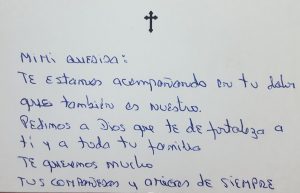 MIMI QUERIDA:
TE estamos acompañando en tu dolor
que también es nuestro.
Pedimos a Dios que te de fortaleza a
ti y a toda tu familia
TE queremos mucho
TUS COMPAÑEROS y AMIGOS DE SIEMPRE